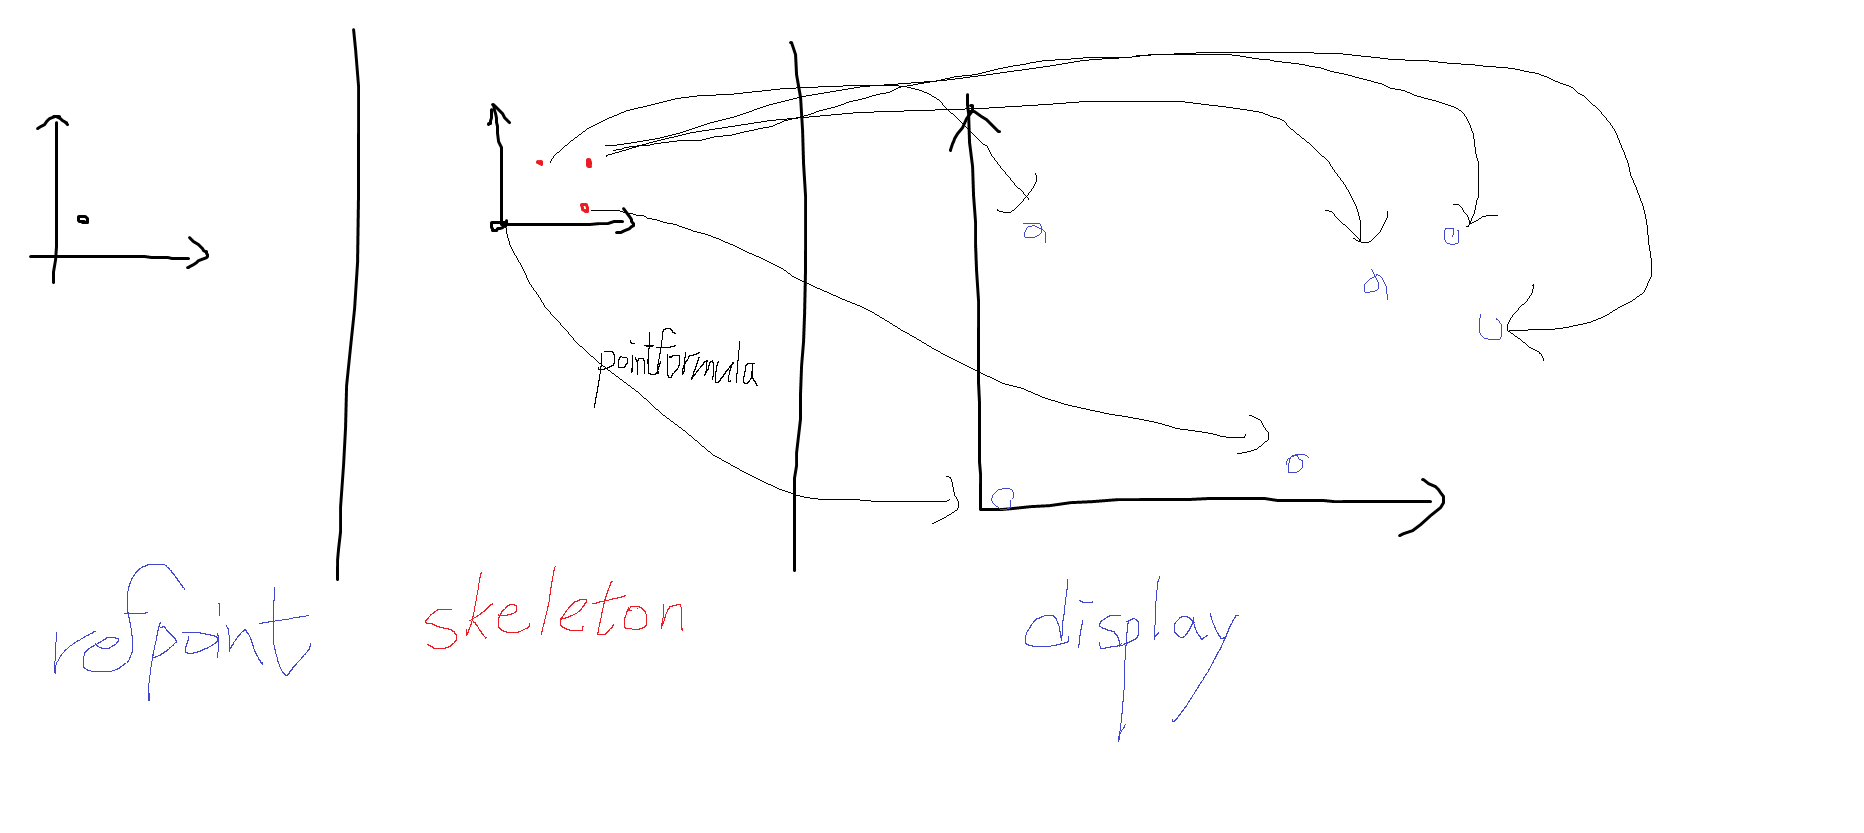 pointformula
refpoint
skeleton
display